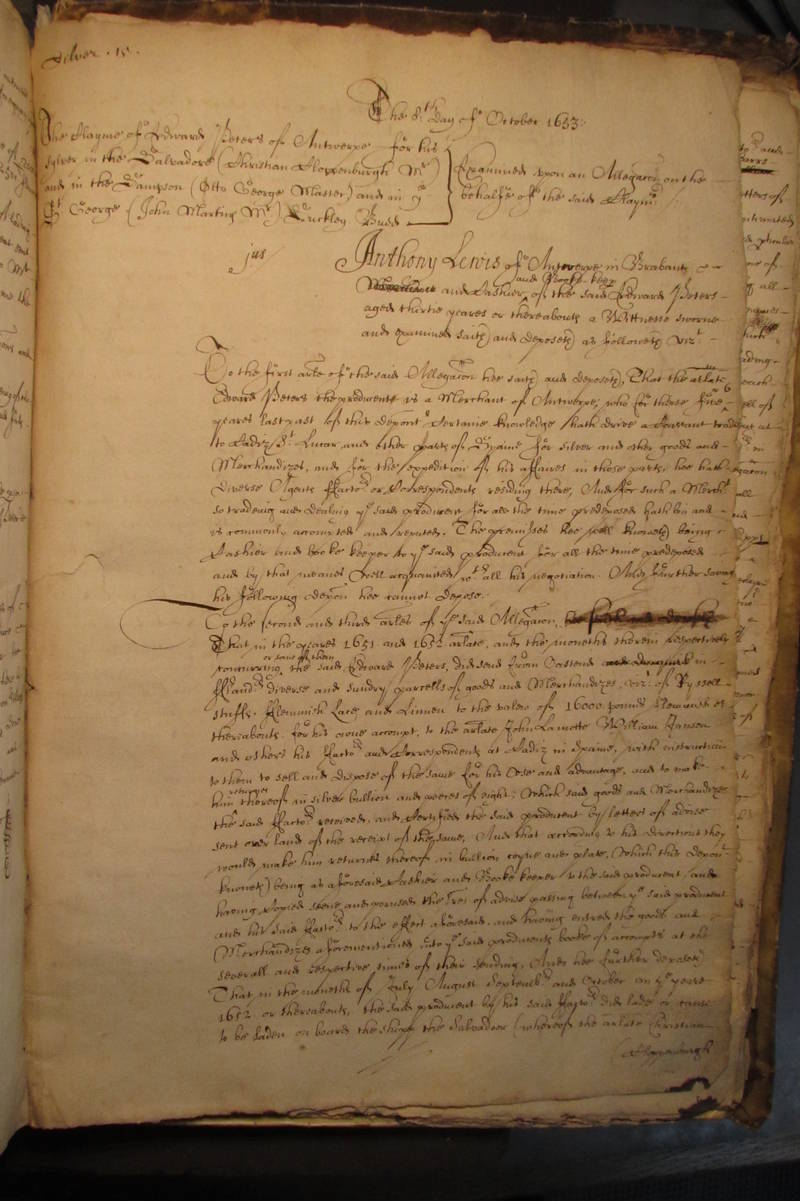 Silver . 15 .
The 8:th Day of October 1653:
The Clayme of Edward Peters of Antwerpe for his
silver in the Salvadore (Christian Cloppenburgh Mr)
and in the Sampson (Otto George Master) and in ye
St George (John Martins Mr) Suckley Budd
Examined upon an Allegacon on the
behalfe of the said Claymr
jus
Anthony Lewis of Antwerpe in Brabant
and Cashier and Booke keeper of the said Edward Peters
aged thirtie yeares or thereabouts a Wittnesse sworne
and examined saith and deposeth as followeth vizt
To the first arle of the said Allegacon hee saith and deposeth, That the arlate
Edward Peters the producent is a Merchant of Antwerpe, who for theese five
yeares last past of this deponts certaine knowledge hath drive a Constant trade
to Cadiz, St Lucar and other parts of Spaine for silver and other goods and
Merchandizes, and for the expedition of his affaires in those parts, hee hath
diverse Agents Factors or Correspondents residing there, And for such a Mercht
so tradeing and dealing ye said producent for all the time predeposed hath bin and
is commonly accompted and reputed. The premisses hee well knoweth being
Cashier and booke keeper to ye said producent for all the time predeposed
and by that meanes well acquainted wth all his negotiation. And further saving
his following depon hee cannot depose.
To the second and third arles of ye said Allegacon,
That in the yeares 1651 and 1652 arlate, and the moneths therein respectively
concurring, or some of them the said Edward Peters, did send from Oastend in
Flanders diverse and sundry parcells of goods and Merchandizes, vizt of Ryssell
stuffs, Flemmish Lace and Linnen to the valew of 16000 pounds Flemish or
thereabouts, for his owne accompt, to the arlate John Lamotte William Janson
and others his Factors and Correspondents at Cadiz in Spaine, with instruction
to them to sell and dispose of the same for his Use and advantage, and to make
him returnes thereof in silver bullion and peeces of eight; Which said goods and Merchandizes
the said Factors received, and Certified the said producent by letters of advise
sent over land of the receipt of the same, And that according to his directions they
would make him returnes thereof in bullion coyne and plate, (Which this depont
knoweth) being as aforesaid Cashier and Booke keeper to the said producent, and
having Copied seene and perused the lres of advise passing betweene ye said producent
and his said Factors to the effect aforesaid, and having entred the goods and
Merchandizes aforementioned into ye said producents booke of accompts at the
severall and respective times of their sending, And hee further deposeth
That in the moneths of July August September and October in ye yeare
1652 or thereabouts, the said producent by his said Factors did lade or cause
to be laden on board the shipp the Salvador (whereof the arlate Christian
Cloppenburgh